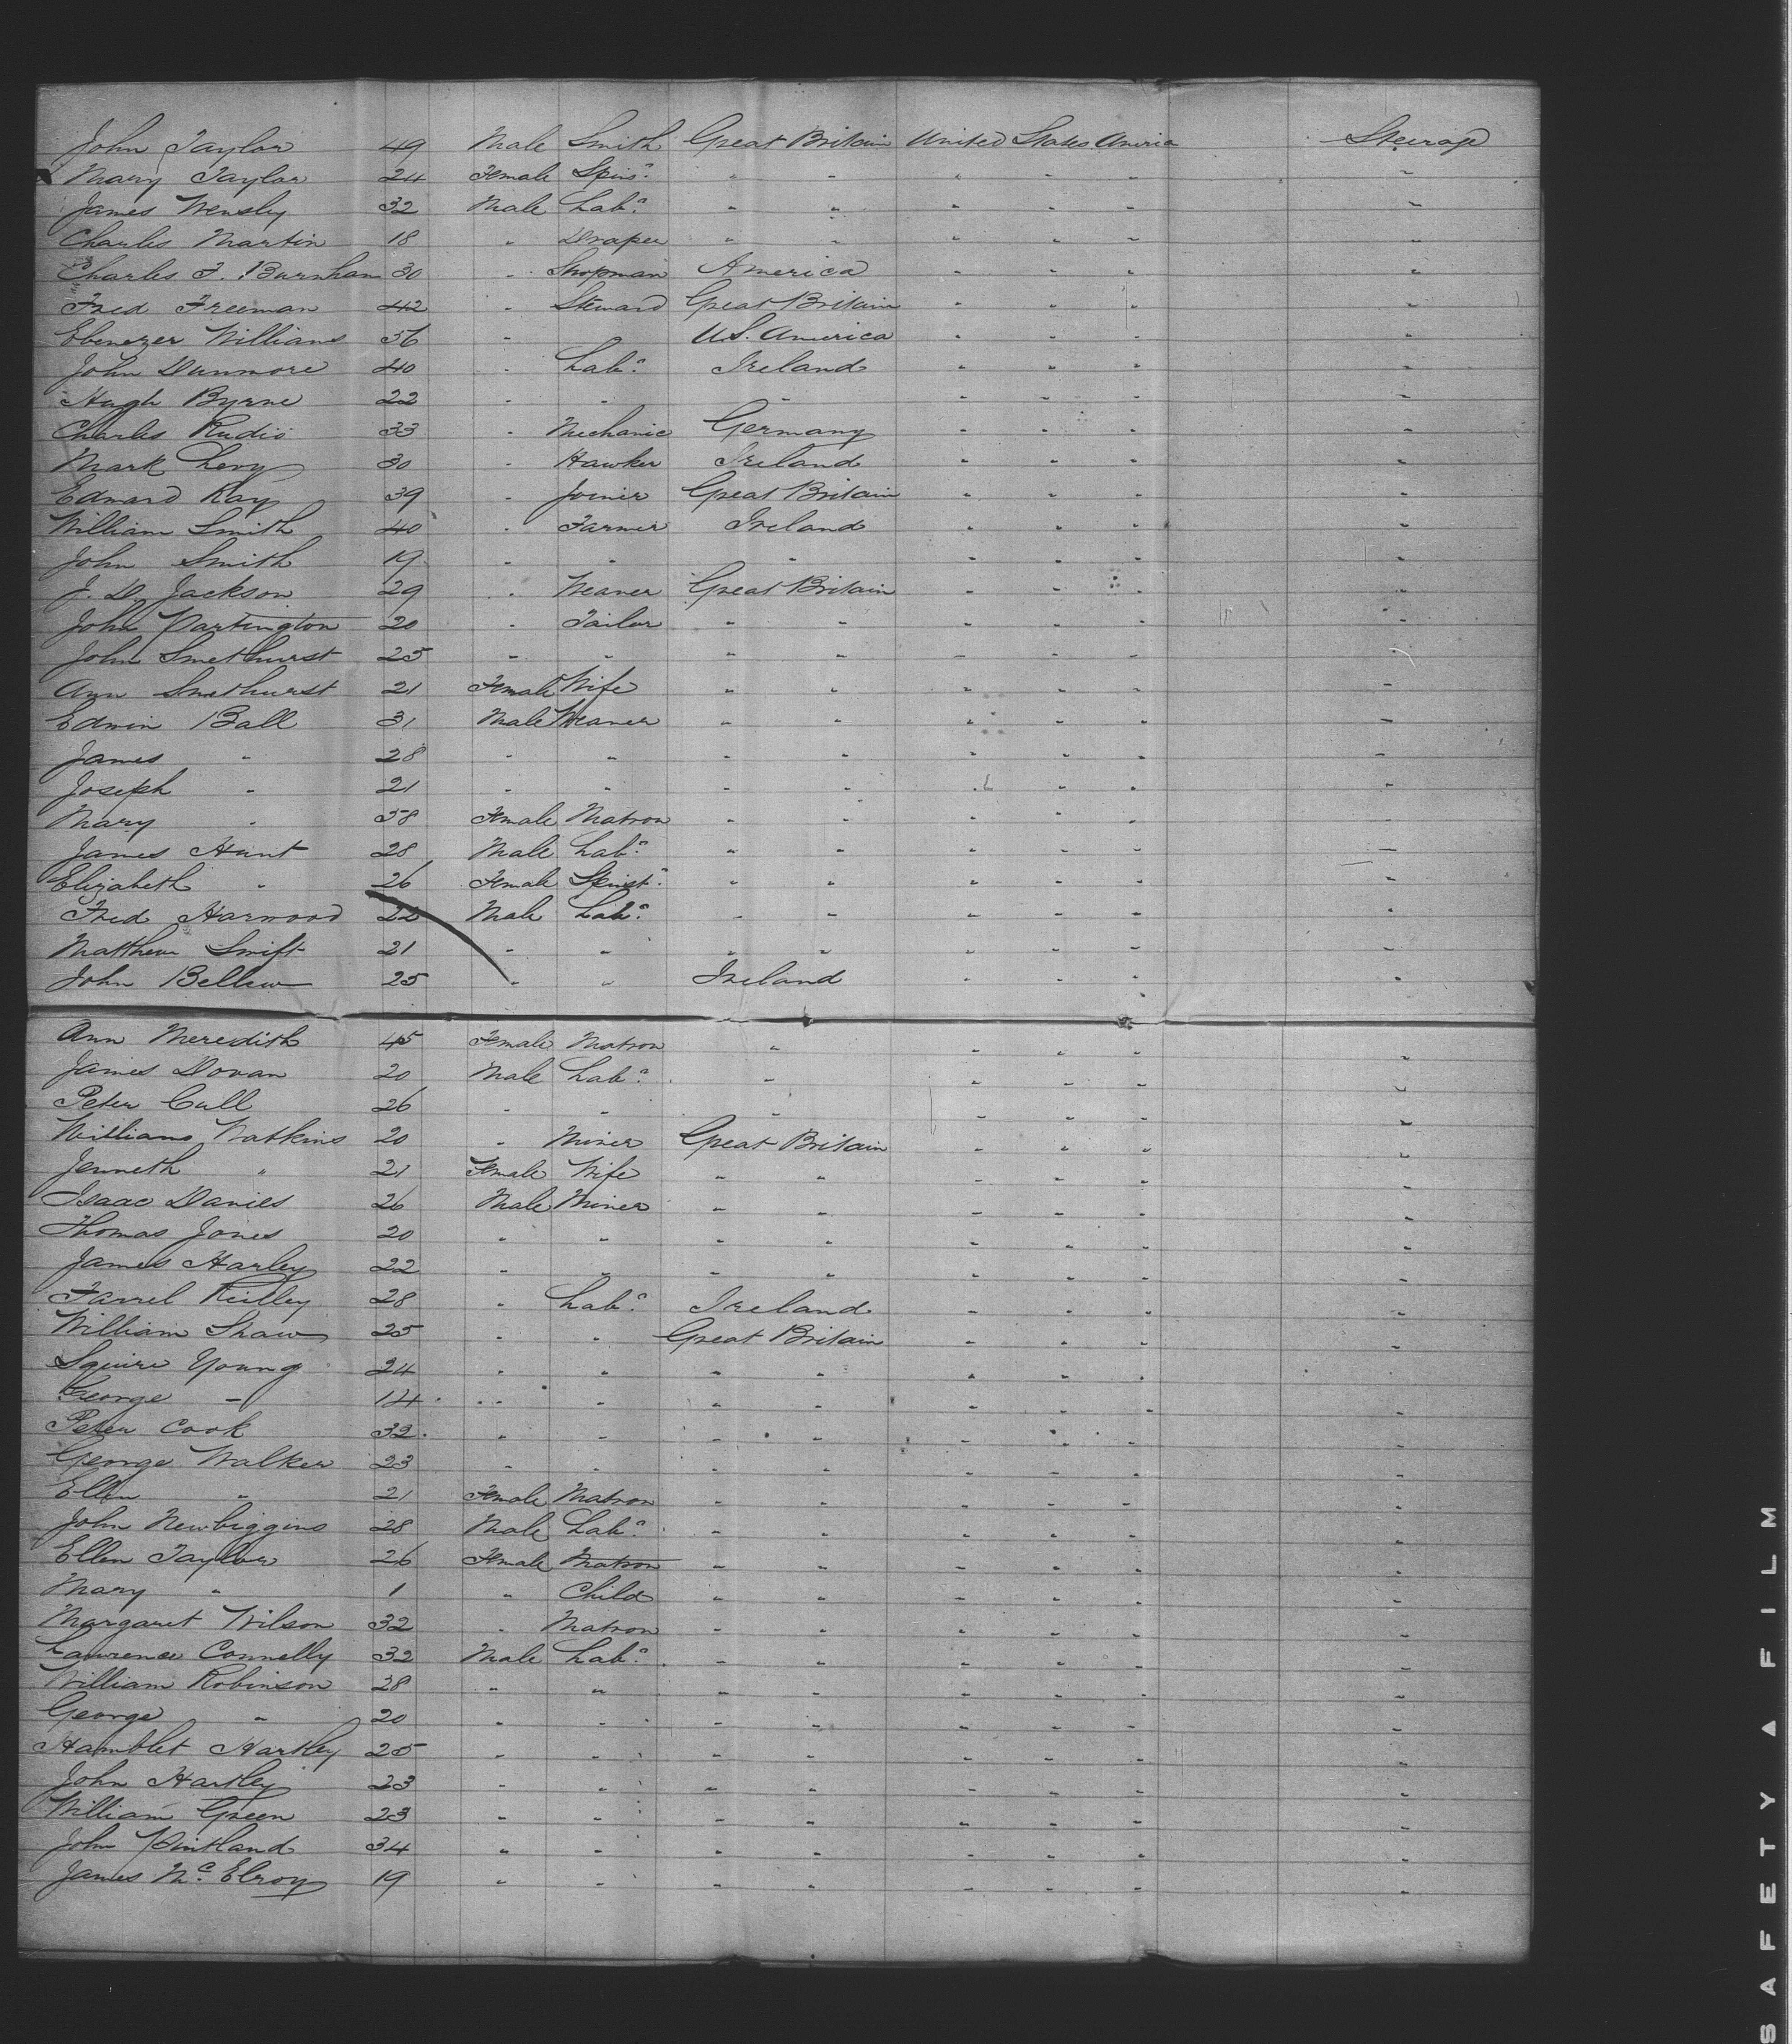 John Taylor 49 Male Smith Great Britain United States America Steerage
Mary Taylor 24 Female Spinr " " " " " "
James Wensley 32 Male Labr " " " " " "
Charles Martin 18 " Draper " " " " " "
Charles F. Burnham 30 " Shopman America " " " "
Fred Freeman 42 " Steward Great Britain " " " "
Ebenezer Williams 36 " U.S. America " " " "
John Dunmore 40 " Labr Ireland " " " "
Hugh Byrne 22 " " " " " " "
Charles Rudio 33 " Mechanic Germany " " " "
Mark Levy 30 " Hawker Ireland " " " "
Edward Kay 39 " Joiner Great Britain " " " "
William Smith 40 " Farmer Ireland " " " "
John Smith 19 " " " " " " "
J. D. Jackson 29 " Weaver Great Britain " " " "
John Partington 20 " Tailor " " " " " "
John Smethurst 25 " " " " " " " "
Ann Smethurst 21 Female Wife " " " " " "
Edwin Ball 31 Male Weaver " " " " " "
James " 28 " " " " " " " "
Joseph " 21 " " " " " " " "
Mary " 58 Female Matron " " " " " "
James Hunt 28 Male Labr " " " " " "
Elizabeth " 26 Female Spinstr " " " " " "
Fred Harwood 22 Male Labr " " " " " "
Matthew Swift 21 " " " " " " " "
John Bellew 25 " " Ireland " " " "
Ann Meredith 45 Female Matron " " " " "
James Dovan 20 Male Labr " " " " "
Peter Cull 26 " " " " " " "
William Watkins 20 " Miner Great Britain " " " "
Jenneth " 21 Female Wife " " " " " "
Isaac Davies 26 Male Miner " " " " " "
Thomas Jones 20 " " " " " " " "
James Harley 22 " " " " " " " "
Farrel Reilley 28 " Labr Ireland " " " "
William Shaw 25 " " Great Britain " " " "
Squire Young 24 " " " " " " " "
George " 14 " " " " " " " "
Peter Cook 32 " " " " " " " "
George Walker 23 " " " " " " " "
Ellen " 21 Female Matron " " " " " "
John Newbiggins 28 Male Labr " " " " " "
Ellen Taylor 26 Female Matron " " " " " "
Mary " 1 " Child " " " " " "
Margaret Wilson 32 " Matron " " " " " "
Lawrence Connelly 32 Male Labr " " " " " "
William Robinson 28 " " " " " " " "
George " 20 " " " " " " " "
Hamblet Hartley 25 " " " " " " " "
John Hartley 23 " " " " " " " "
William Green 23 " " " " " " " "
John Pintland 34 " " " " " " " "
James Mc Elroy 19 " " " " " " " "
SAFETY ▲ FILM